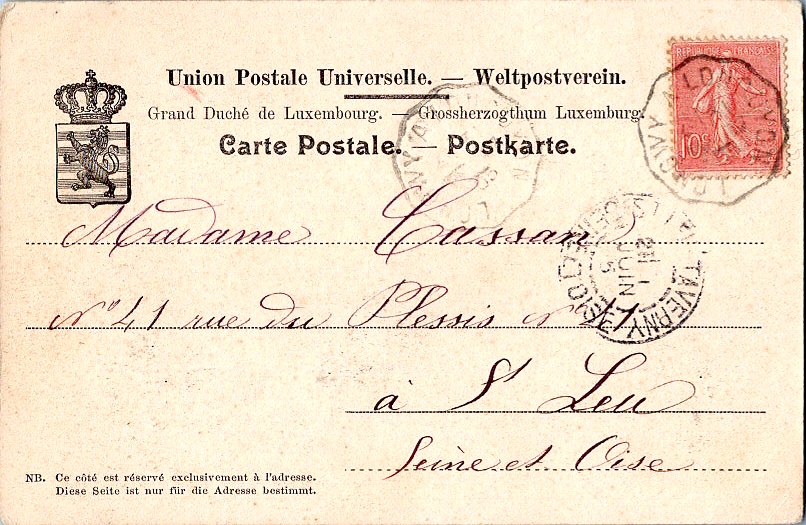 Union Postale Universelle. — Weltpostverein.
Grand Duché de Luxembourg. — Grossherzogthum Luxemburg.
Carte Postale. — Postkarte.
REPUBLIQUE FRANÇAISE
10c
LONGWY A LONGUYON
Madame Cassan
JUIN
TAVERNY
No 41 rue du Plessis no 41
à St Leu
Seine et Oise
NB. Ce côté est réservé exclusivement à l'adresse.
Diese Seite ist nur für die Adresse bestimmt.